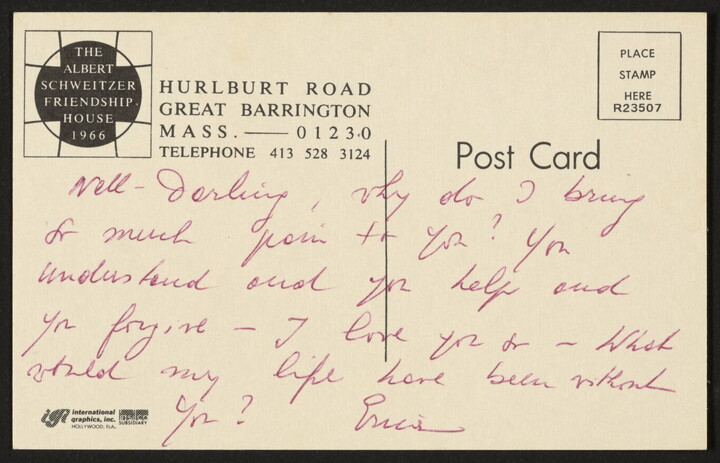 THE
ALBERT
SCHWEITZER
FRIENDSHIP
HOUSE
1966
HURLBURT ROAD
GREAT BARRINGTON
MASS. — 01230
TELEPHONE 413 528 3124
PLACE
STAMP
HERE
R23507
Post Card
Well - Darling, why do I bring
so much pain to you? You
understand and you help and
you forgive - I love you so - What
would my life have been without
You? Erica
igi international
graphics, inc.
HOLLYWOOD, FLA.
SUBSIDIARY